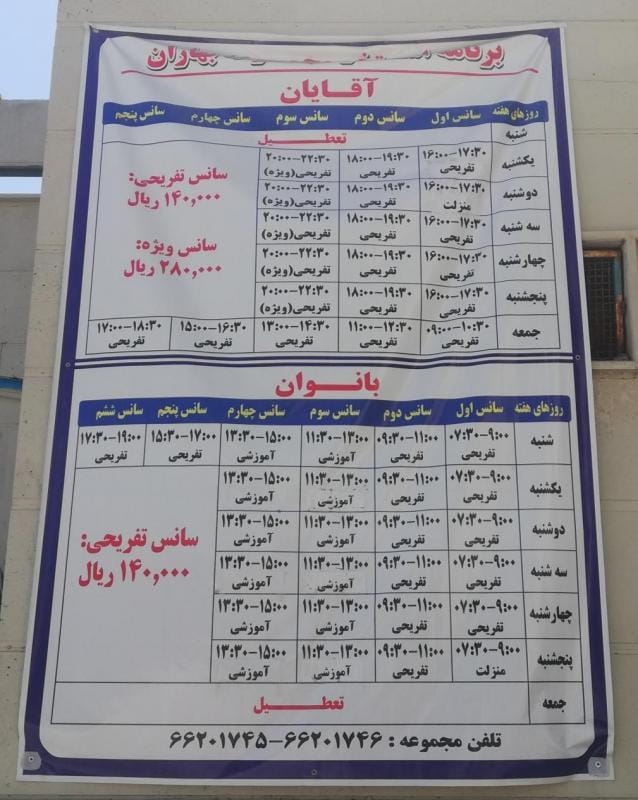 برنامه بهاران
آقایان
روزهای هفته سانس اول سانس دوم سانس سوم سانس چهارم سانس پنجم
شنبه تعطیل
یکشنبه ۱۶:۰۰-۱۷:۳۰ ۱۸:۰۰-۱۹:۳۰ ۲۰:۰۰-۲۲:۳۰
تفریحی تفریحی تفریحی(ویژه)
دوشنبه ۱۶:۰۰-۱۷:۳۰ ۱۸:۰۰-۱۹:۳۰ ۲۰:۰۰-۲۲:۳۰
منزلت تفریحی تفریحی(ویژه)
سه شنبه ۱۶:۰۰-۱۷:۳۰ ۱۸:۰۰-۱۹:۳۰ ۲۰:۰۰-۲۲:۳۰
تفریحی تفریحی تفریحی(ویژه)
چهارشنبه ۱۶:۰۰-۱۷:۳۰ ۱۸:۰۰-۱۹:۳۰ ۲۰:۰۰-۲۲:۳۰
تفریحی تفریحی تفریحی(ویژه)
پنجشنبه ۱۶:۰۰-۱۷:۳۰ ۱۸:۰۰-۱۹:۳۰ ۲۰:۰۰-۲۲:۳۰
تفریحی تفریحی تفریحی(ویژه)
سانس تفریحی:
۱۴۰,۰۰۰ ریال
سانس ویژه:
۲۸۰,۰۰۰ ریال
جمعه ۰۹:۰۰-۱۰:۳۰ ۱۱:۰۰-۱۲:۳۰ ۱۳:۰۰-۱۴:۳۰ ۱۵:۰۰-۱۶:۳۰ ۱۷:۰۰-۱۸:۳۰
تفریحی تفریحی تفریحی تفریحی تفریحی
بانوان
روزهای هفته سانس اول سانس دوم سانس سوم سانس چهارم سانس پنجم سانس ششم
شنبه ۰۷:۳۰-۹:۰۰ ۰۹:۳۰-۱۱:۰۰ ۱۱:۳۰-۱۳:۰۰ ۱۳:۳۰-۱۵:۰۰ ۱۵:۳۰-۱۷:۰۰ ۱۷:۳۰-۱۹:۰۰
تفریحی تفریحی آموزشی آموزشی تفریحی تفریحی
یکشنبه ۰۷:۳۰-۹:۰۰ ۰۹:۳۰-۱۱:۰۰ ۱۱:۳۰-۱۳:۰۰ ۱۳:۳۰-۱۵:۰۰
تفریحی تفریحی آموزشی آموزشی
دوشنبه ۰۷:۳۰-۹:۰۰ ۰۹:۳۰-۱۱:۰۰ ۱۱:۳۰-۱۳:۰۰ ۱۳:۳۰-۱۵:۰۰
تفریحی تفریحی آموزشی آموزشی
سه شنبه ۰۷:۳۰-۹:۰۰ ۰۹:۳۰-۱۱:۰۰ ۱۱:۳۰-۱۳:۰۰ ۱۳:۳۰-۱۵:۰۰
تفریحی تفریحی آموزشی آموزشی
چهارشنبه ۰۷:۳۰-۹:۰۰ ۰۹:۳۰-۱۱:۰۰ ۱۱:۳۰-۱۳:۰۰ ۱۳:۳۰-۱۵:۰۰
تفریحی تفریحی آموزشی آموزشی
پنجشنبه ۰۷:۳۰-۹:۰۰ ۰۹:۳۰-۱۱:۰۰ ۱۱:۳۰-۱۳:۰۰ ۱۳:۳۰-۱۵:۰۰
منزلت تفریحی آموزشی آموزشی
سانس تفریحی:
۱۴۰,۰۰۰ ریال
جمعه تعطیل
تلفن مجموعه : ۶۶۲۰۱۷۴۵-۶۶۲۰۱۷۴۶